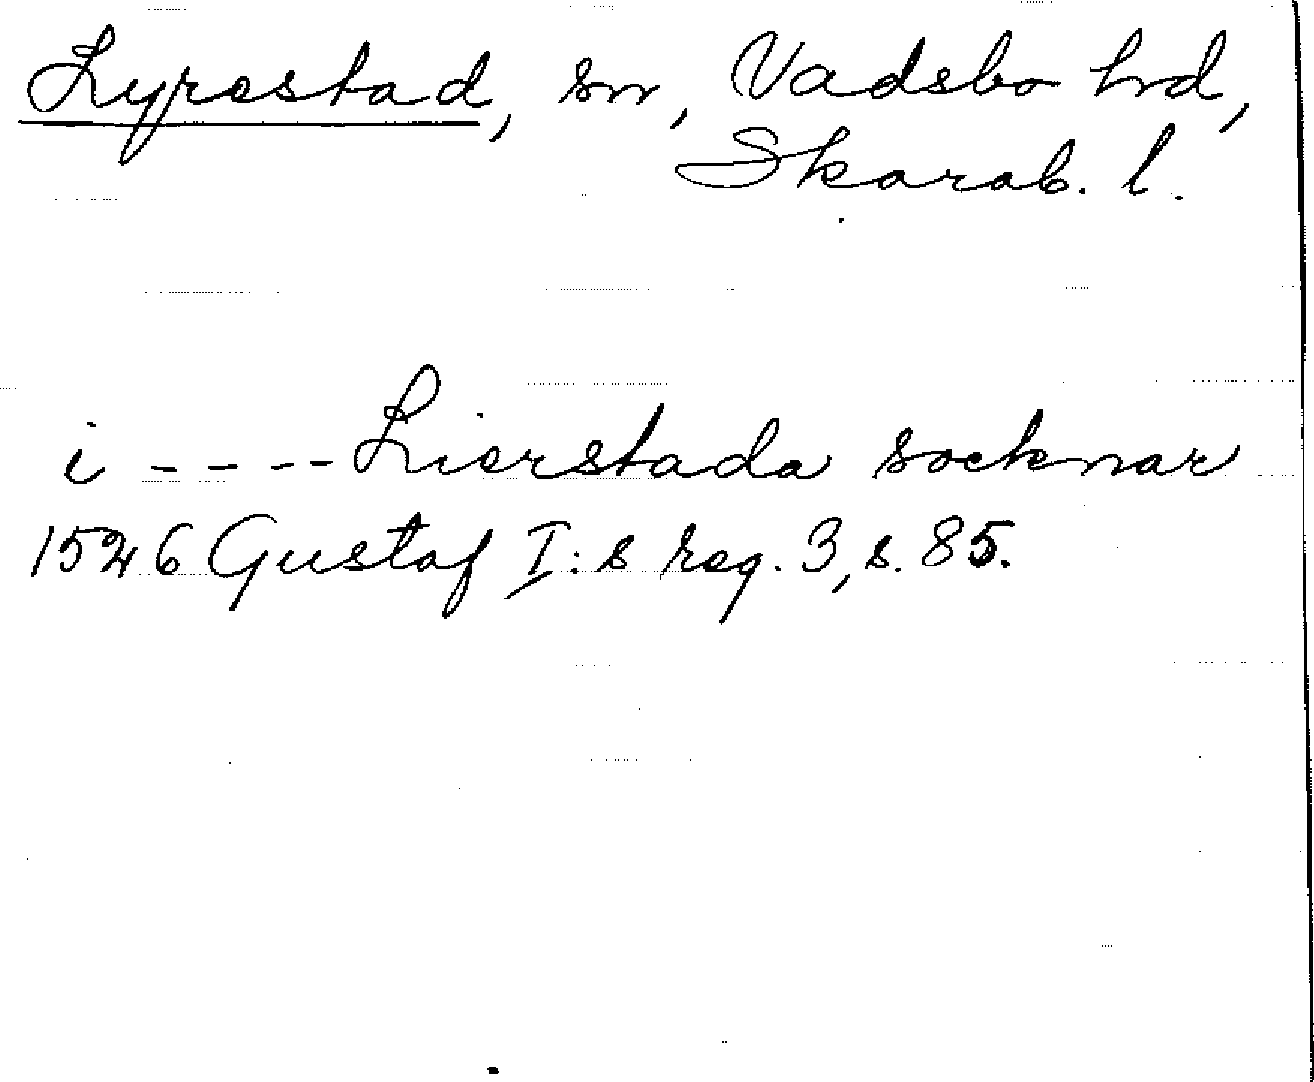 Lyrestad, sn, Vadsbo hd,
Skarab. l.
i ---- Lierstada socknar
1526 Gustaf I:s reg. 3, s. 85.